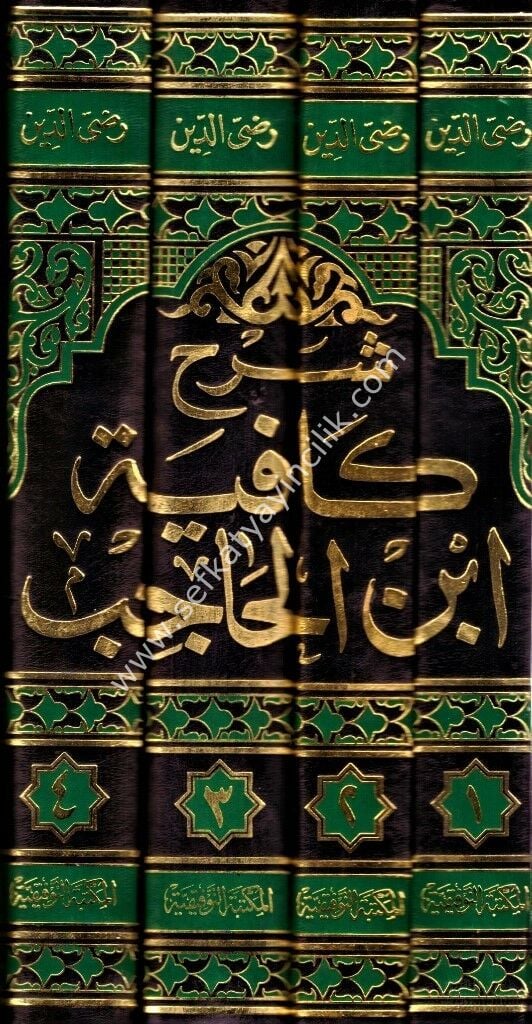 رضى الدين رضى الدين رضى الدين رضى الدين
شرح
كافية
ابن الحاجب
١ ٢ ٣ ٤
المكتبة التوفيقية المكتبة التوفيقية المكتبة التوفيقية المكتبة التوفيقية
www.sefkatyayincilik.com